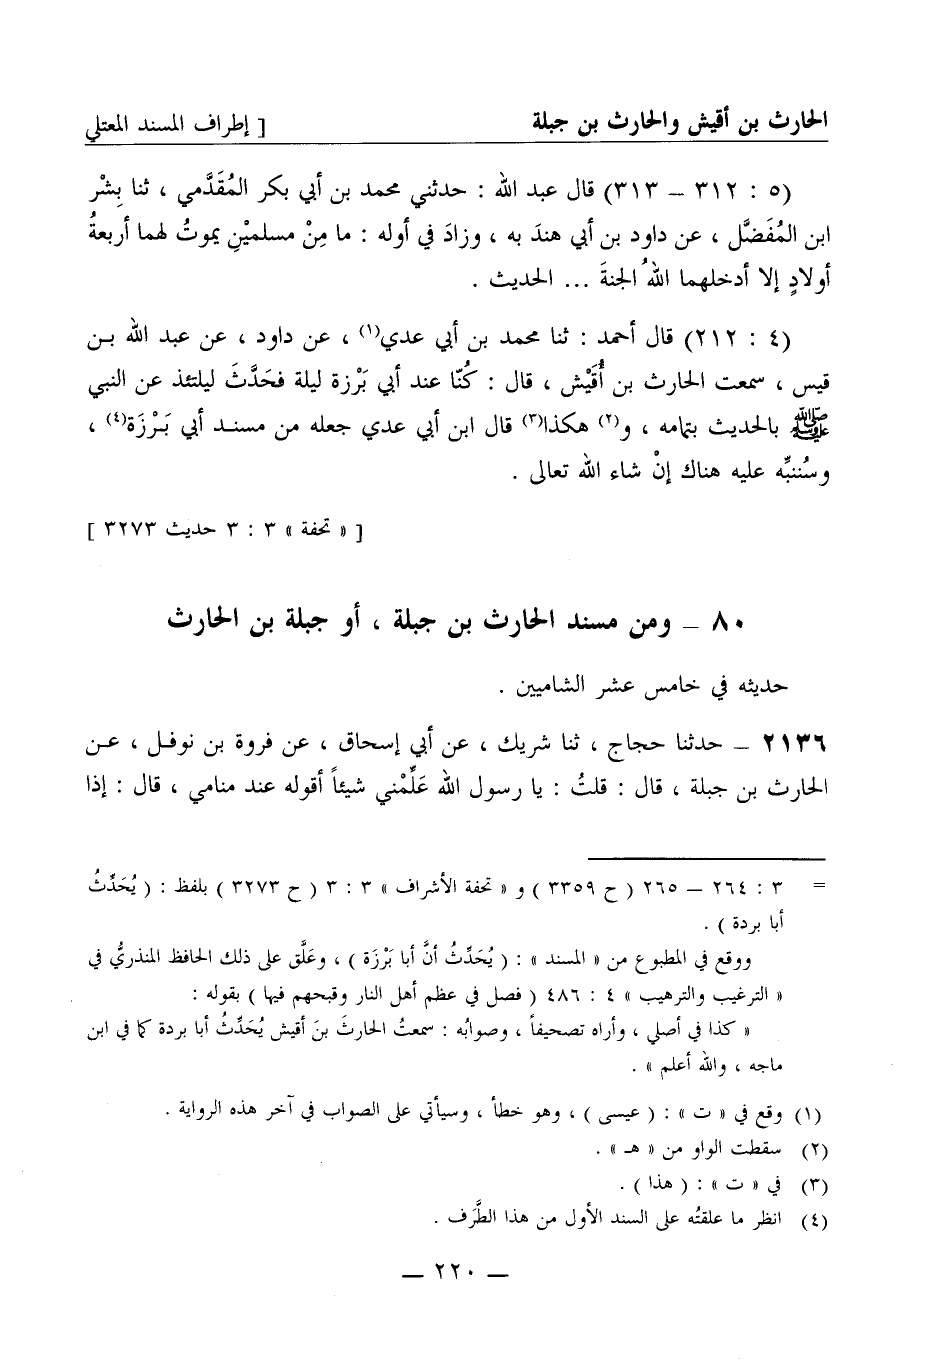 الحارث بن أقيش والحارث بن جبلة [ إطراف المسند المعتلي
(٥ : ٣١٢ – ٣١٣) قال عبد الله : حدثني محمد بن أبي بكر المُقَدَّمي ، ثنا بِشْر
ابن المُفَضَّل ، عن داود بن أبي هندَ به ، وزادَ في أوله : ما مِنْ مسلميْنِ يموتُ لهما أربعةُ
أولادٍ إلا أدخلهما اللهُ الجنةَ ... الحديث .
(٤ : ٢١٢) قال أحمد : ثنا محمد بن أبي عدي(١) ، عن داود ، عن عبد الله بـن
قيس ، سمعت الحارث بن أُقَيْش ، قال : كُنّا عند أبي بَرْزة ليلة فحَدَّثَ ليلتئذ عن النبي
ﷺ بالحديث بتمامه ، و(٢) هكذا(٣) قال ابن أبي عدي جعله من مسنـد أبي بَـرْزة(٤) ،
وسُننبِّه عليه هناك إنْ شاء الله تعالى .
[ « تحفة » ٣ : ٣ حديث ٣٢٧٣ ]
٨٠ – ومن مسند الحارث بن جبلة ، أو جبلة بن الحارث
حديثه في خامس عشر الشاميين .
٢١٣٦ – حدثنا حجاج ، ثنا شريك ، عن أبي إسحاق ، عن فروة بن نوفـل ، عـن
الحارث بن جبلة ، قال : قلتُ : يا رسول الله عَلِّمْني شيئاً أقوله عند منامي ، قال : إذا
= ٣ : ٢٦٤ – ٢٦٥ ( ح ٣٣٥٩ ) و « تحفة الأشراف » ٣ : ٣ ( ح ٣٢٧٣ ) بلفظ : ( يُحَدِّثُ
أبا بردة ) .
ووقع في المطبوع من « المسند » : ( يُحَدِّثُ أنَّ أبا بَرْزة ) ، وعَلَّق على ذلك الحافظ المنذريُّ في
« الترغيب والترهيب » ٤ : ٤٨٦ ( فصل في عظم أهل النار وقبحهم فيها ) بقوله :
« كذا في أصلي ، وأراه تصحيفاً ، وصوابُه : سمعتُ الحارثَ بنَ أقيش يُحَدِّثُ أبا بردة كما في ابن
ماجه ، والله أعلم » .
(١) وقع في « ت » : ( عيسى ) ، وهو خطأ ، وسيأتي على الصواب في آخر هذه الرواية .
(٢) سقطت الواو من « هـ » .
(٣) في « ت » : ( هذا ) .
(٤) انظر ما علقتُه على السند الأول من هذا الطَّرَف .
– ٢٢٠ –